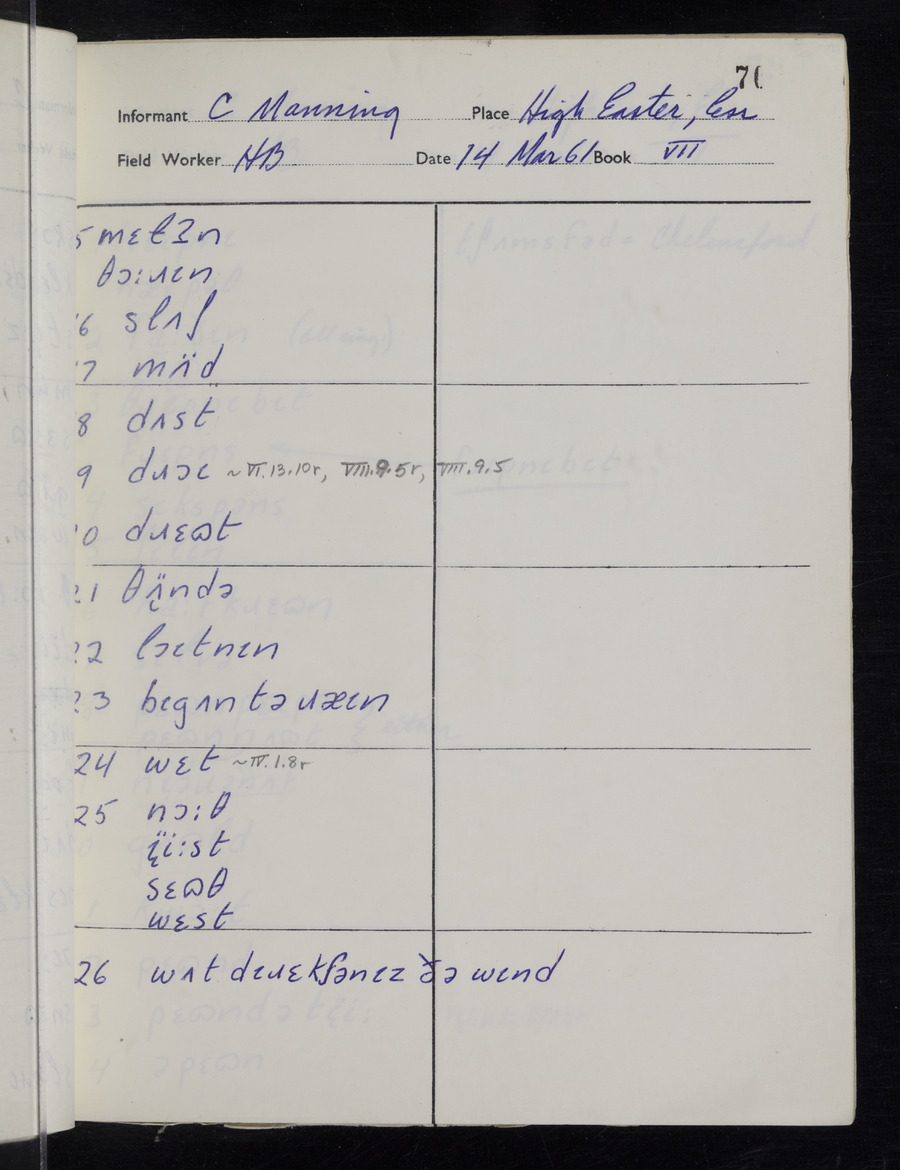 71
Informant C Manning Place High Easter, Ess
Field Worker HB Date 14 Mar 61 Book VII
5 mɛtɪn
θɔ:ɹɪn
'6 slʌʃ
'7 mʌ̈d
8 dʌst
9 dɹɔɪ ~VI.13.10r, VIII.9.5r, VIII.9.5
'0 dɹɛɷt
21 θʌ̈ndə
22 lɔɪtnɪn
23 bɪgʌn tə ɹæɪn
24 wɛt ~IV.1.8r
25 nɔ:θ
ï:st
sɛɷθ
wɛst
26 wʌt dɪɹɛkʃənɪz ðə wɪnd